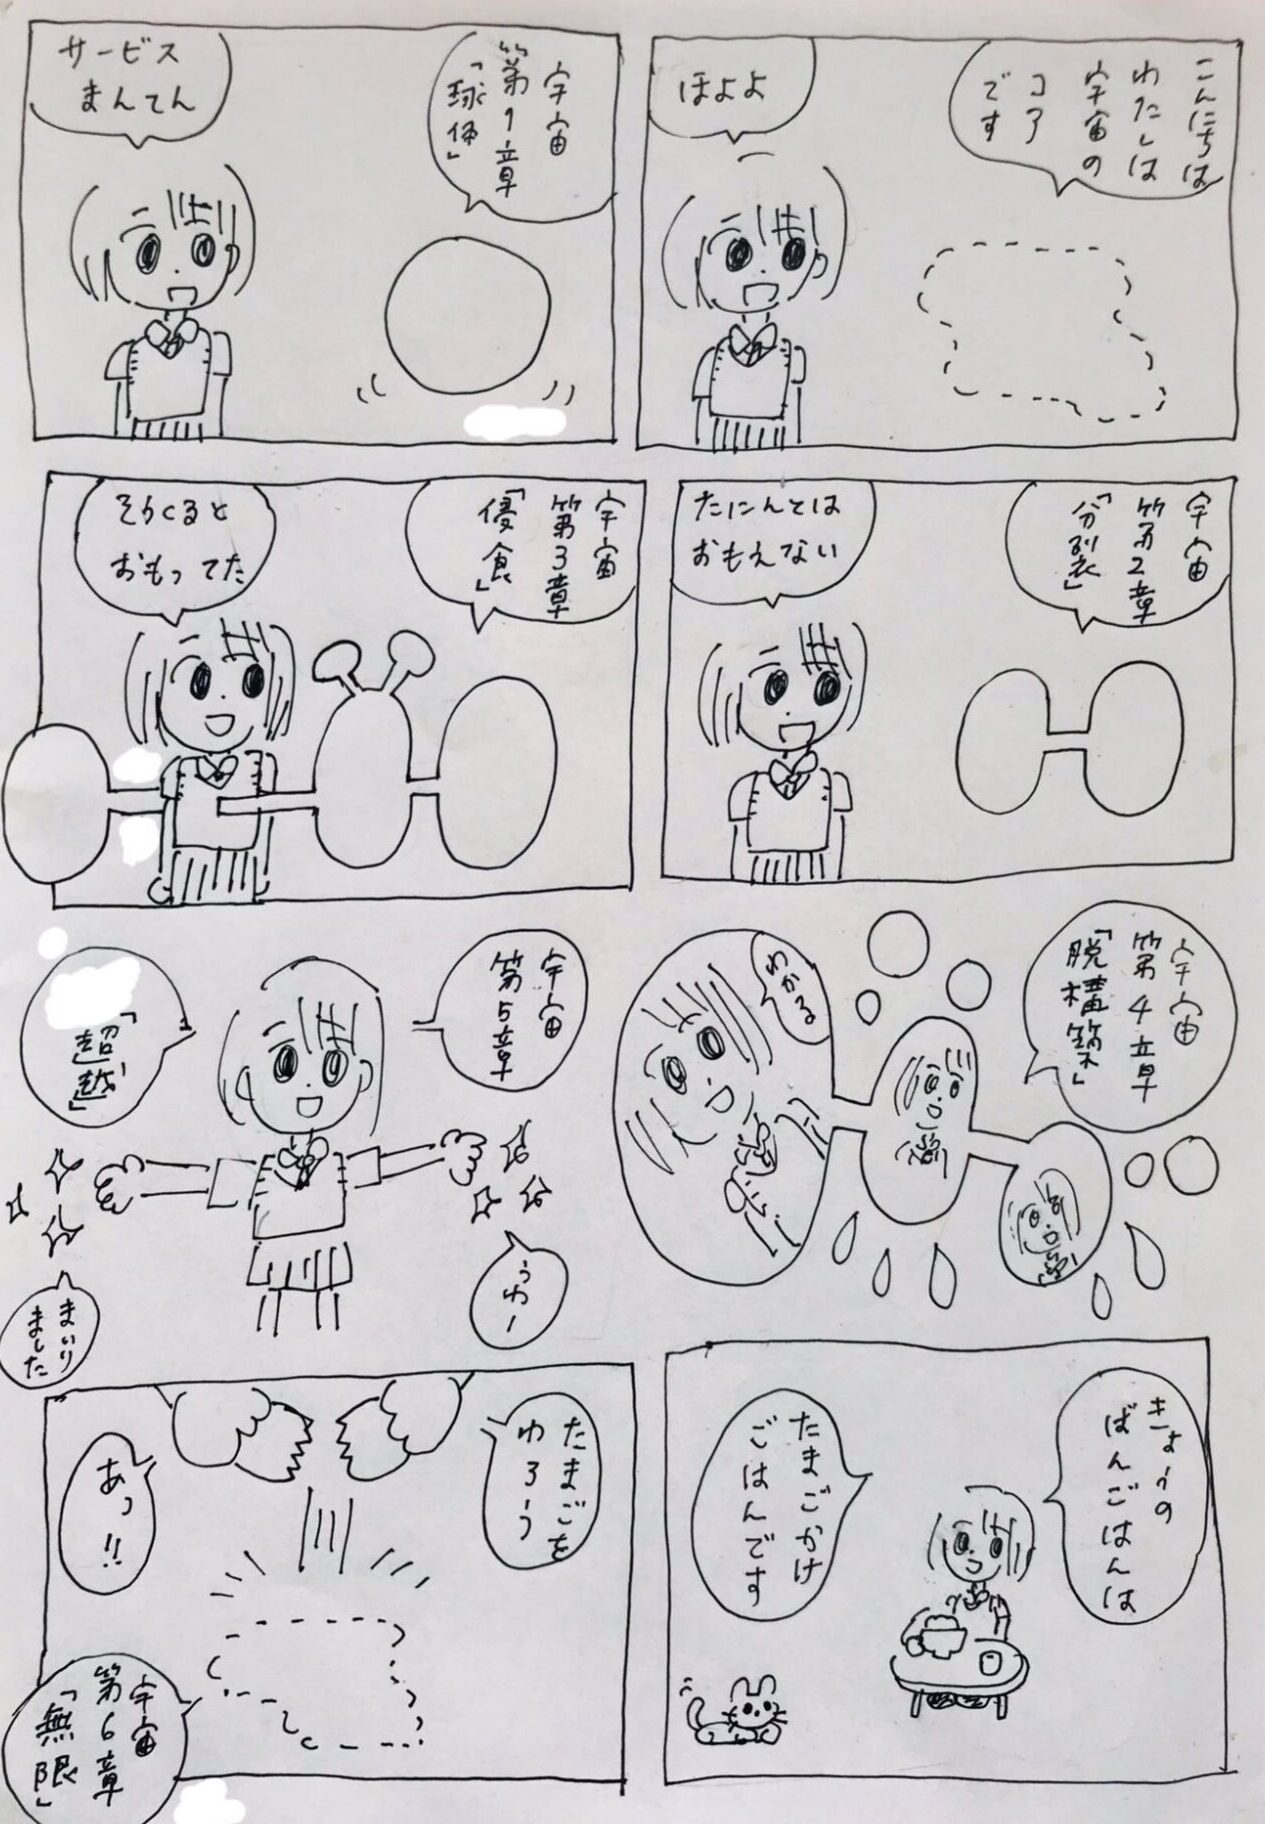 こんにちは
わたしは
宇宙の
コア
です
ほよよ
宇宙
第1章
「球体」
サービス
まんてん
宇宙
第2章
「分裂」
たにんとは
おもえない
宇宙
第3章
「侵食」
そうくると
おもってた
宇宙
第4章
「脱構築」
わかる
宇宙
第5章
「超越」
うわー
まいり
ました
きょうの
ばんごはんは
たまごかけ
ごはんです
たまごを
わろう
あっ!!
宇宙
第6章
「無限」